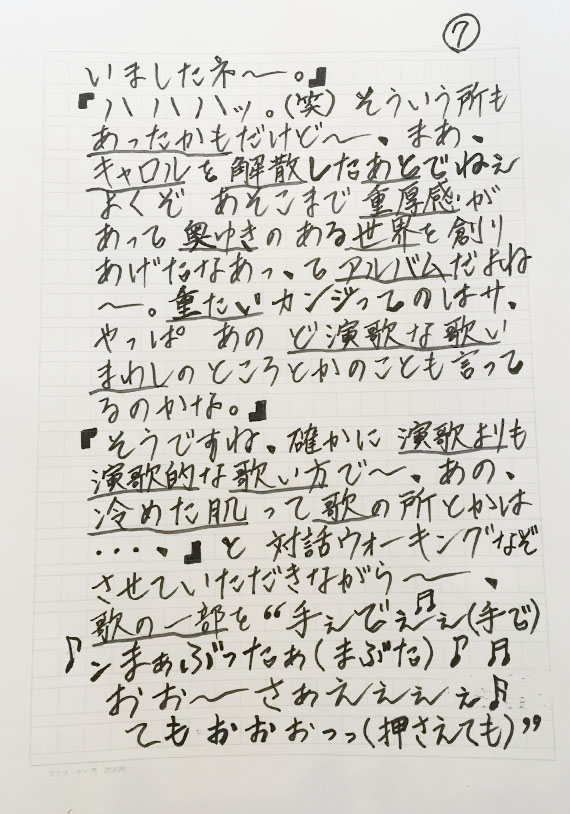 ⑦
いましたネ〜。』
『ハハハハッ。(笑) そういう所も
あったかもだけど〜、まあ、
キャロルを解散したあとでねぇ
よくぞ あそこまで重厚感が
あって奥ゆきのある世界を創り
あげたなあっ、てアルバムだよね
〜。重たいカンジってのはサ、
やっぱ あの ど演歌な歌い
まわしのところとかのことも言って
るのかな。』
『そうですね、確かに演歌よりも
演歌的な歌い方で〜、あの、
冷めた肌って歌の所とかは
・・・・、』と対話ウォーキングなぞ
させていただきながら〜、
歌の一部を“手ぇでぇ♬ぇ(手で)
♪ンまぁぶったぁ(まぶた)♪ ♬
おお〜さぁえぇぇぇ♬
てもおおおっっ(押さえても)”